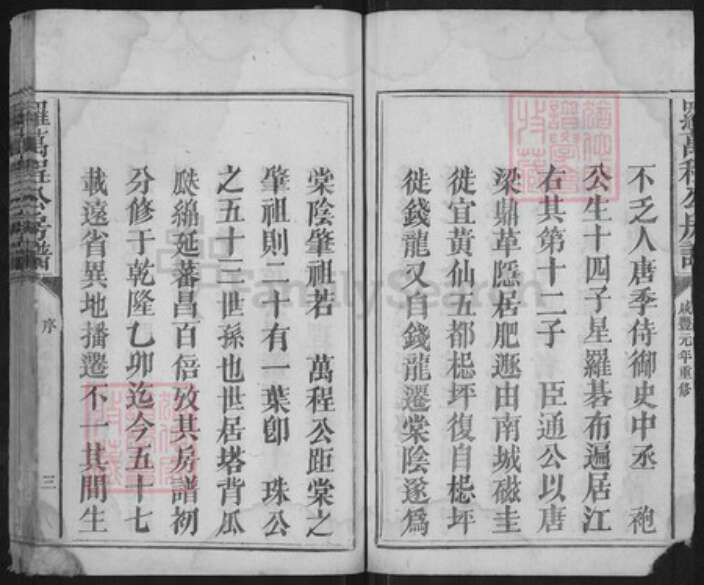 不乏人唐季侍御史中丞　袍
公生十四子星羅碁布遍居江
右其第十二子　臣通公以唐
梁鼎革隱居肥遯由南城磁圭
徙宜黃仙五都梞坪復自梞坪
徙錢龍又自錢龍遷棠陰遂爲
棠陰肇祖若　萬程公距棠之
肇祖則二十有一葉卽　珠公
之五十三世孫也世居塔背瓜
瓞緜延蕃昌百倍攷其房譜初
分修于乾隆乙卯迄今五十七
載遠省異地播遷不一其間生
羅萬程公房譜
咸豐元年重修
羅萬程公房譜
序
三
FamilySearch